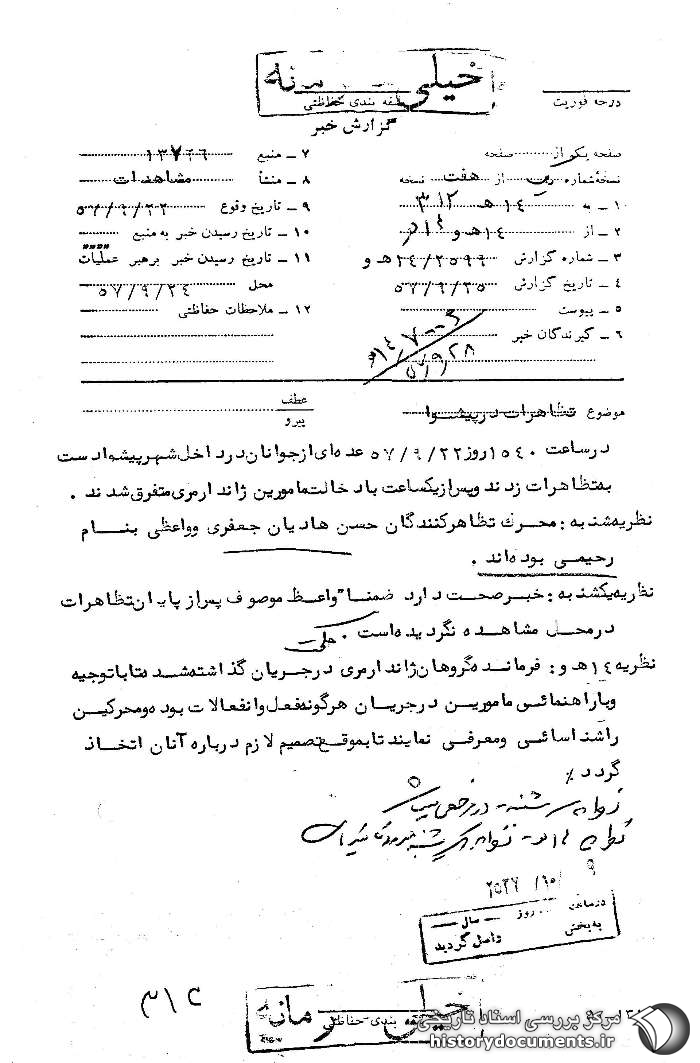 خیلی
طبقه بندی حفاظتی
درجه فوریت
گزارش خبر
صفحه یک از صفحه
نسخه شماره از هفت نسخه
۱ ـ به ۱۴ هـ ۳۱۲
۲ ـ از ۱۴ هـ و
۳ ـ شماره گزارش ۲۵۹۹/۱۴ هـ و
۴ ـ تاریخ گزارش ۵۷/۹/۲۵
۵ ـ پیوست
۶ ـ گیرندگان خبر
۷ ـ منبع ۱۳۷۶۶
۸ ـ منشأ مشاهدات
۹ ـ تاریخ وقوع ۵۷/۹/۲۲
۱۰ ـ تاریخ رسیدن خبر به منبع
۱۱ ـ تاریخ رسیدن خبر برهبر عملیات
محل ۵۷/۹/۲۴
۱۲ ـ ملاحظات حفاظتی
۵۷/۹/۲۸
موضوع تظاهرات در پیشوا
عطف
پیرو
در ساعت ۱۵۴۰ روز ۵۷/۹/۲۲ عده ای از جوانان در داخل شهر پیشوا دست
به تظاهرات زدند و پس از یکساعت با دخالت مامورین ژاندارمری متفرق شدند .
نظریه شنبه : محرک تظاهر کنندگان حسن هادیان جعفری و واعظی بنام
رحیمی بوده اند .
نظریه یکشنبه : خبر صحت دارد ضمنا" واعظ موصوف پس از پایان تظاهرات
در محل مشاهده نگردیده است .
نظریه ۱۴ هـ و : فرمانده گروهان ژاندارمری در جریان گذاشته شد تا با توجیه
و با راهنمائی مامورین در جریان هرگونه فعل و انفعالات بوده و محرکین
را شناسائی و معرفی نمایند تا بموقع تصمیم لازم درباره آنان اتخاذ
گردد ٪
۲۵۳۷/۱۰/۹
روز سال
به بخش واصل گردید
۳۱۲
خیلی
بندی حفاظتی
مرکز بررسی اسناد تاریخی
historydocuments.ir